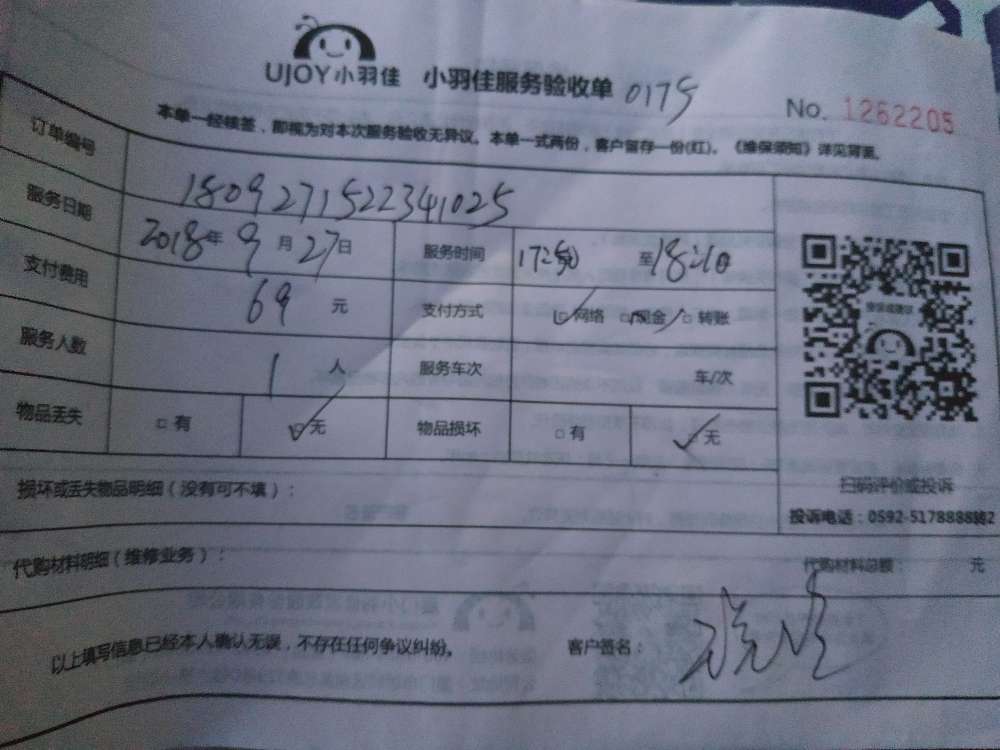 UJOY小羽佳 小羽佳服务验收单 0175
No. 1262205
本单一经核签，即视为对本次服务验收无异议。本单一式两份，客户留存一份(红)。《维保须知》详见背面。
订单编号 1809271522341025
服务日期 2018年9月27日 服务时间 至18:10
支付费用 69元 支付方式 网络 现金 转账
服务人数 1人 服务车次 车/次
物品丢失 有 无 物品损坏 有 无
扫码评价或投诉
投诉电话：0592-5178888转2
损坏或丢失物品明细（没有可不填）：
代购材料明细（维修业务）： 代购材料总额： 元
以上填写信息已经本人确认无误，不存在任何争议纠纷。 客户签名：